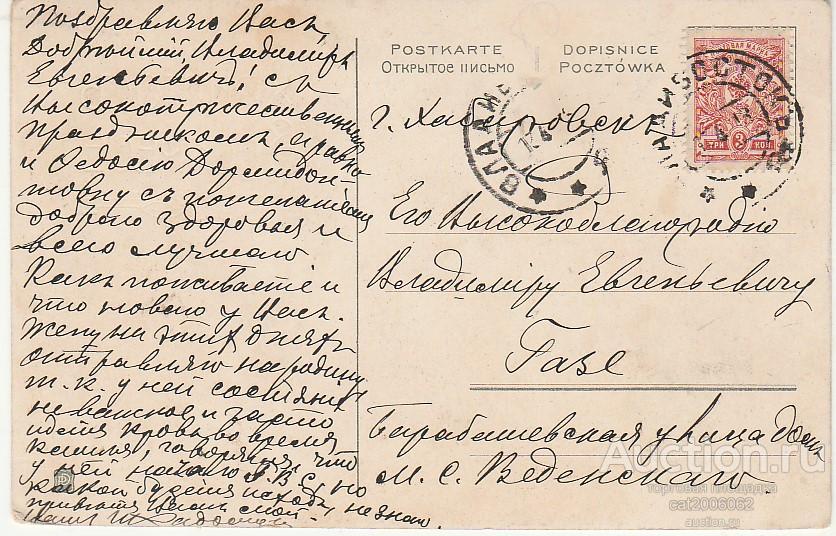 Поздравляю Васъ,
Добрѣйшій Владиміръ
Евгеньевичъ! съ
Высокоторжественнымъ
Праздникомъ, и равно
и Федосію Дормидон
товну съ пожеланіемъ
добраго здоровья и
всего лучшаго
Какъ поживаете и
что новаго у Васъ.
Жену на этихъ дняхъ
отправляю на родину
т. к. у ней состояніе
неважное и часто
идетъ кровь во время
кашля, говорятъ, что
у ней начало но
какой будетъ исходъ не знаю.
Вашъ
POSTKARTE
Открытое письмо
DOPISNICE
POCZTÓWKA
ВЛАДИВОСТОКЪ
ТРИ 3 КОП
г. Хабаровскъ
Его Высокоблагородію
Владиміру Евгеньевичу
Газе
Барабашевская улица домъ
М. С. Веденскаго.
Auction.ru
торговая площадка
cat2006062
auction.ru